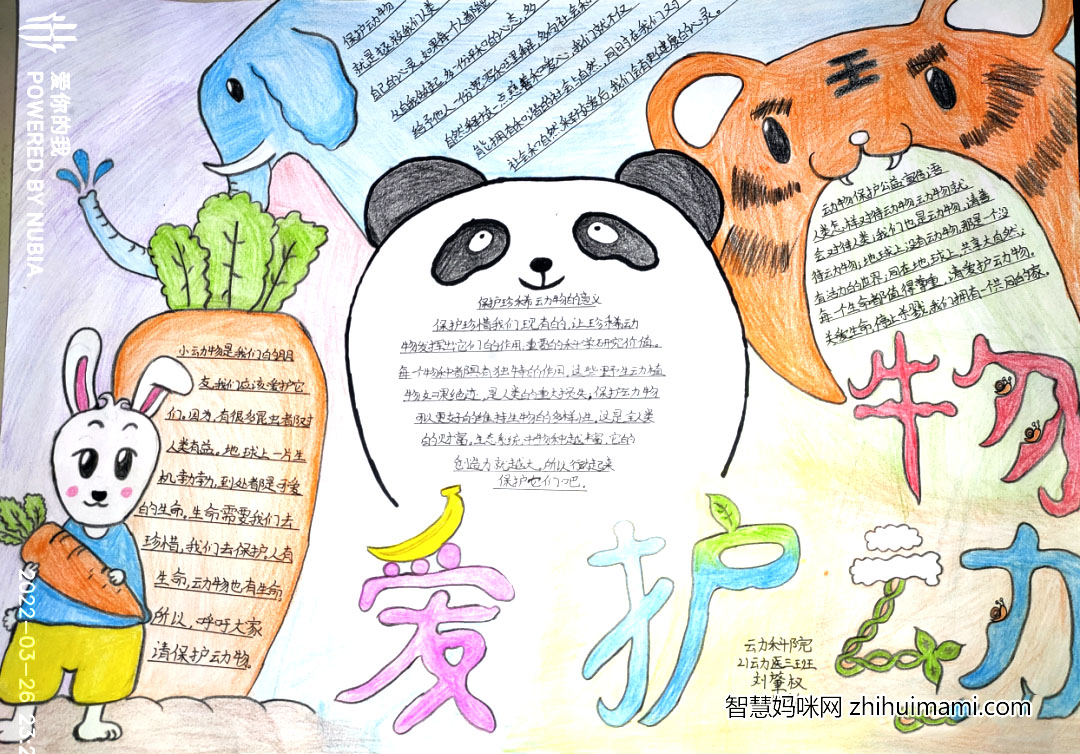 爱你的我
POWERED BY NUBIA
2022-03-26 23:2
保护动物
就是拯救我们人类
自己的心灵。如果每个人都能
从自我做起，多一份平和的心态，多
给予他人一份宽容和理解，多向社会和
自然释放一点慈善和爱心，我们就不仅
能拥有和谐的社会与自然，同时在我们对
社会和自然释放爱后，我们会有更健康的心灵。
王
动物保护公益宣传语
人类怎样对待动物，动物就
会对待人类；我们也是动物，请善
待动物；地球上没有动物，那是一个没
有活力的世界；同在地球上，共享大自然；
每个生命都值得尊重，请爱护动物。
关爱生命，停止杀戮，我们拥有一供同的家。
保护珍稀动物的意义
保护珍惜我们现有的，让珍稀动
物发挥出它们的作用，重要的科学研究价值。
每个物种都具有独特的作用，这些野生动植
物如果绝迹，是人类的重大损失。保护动物
可以更好的维持生物的多样性。这是全人类
的财富，生态系统中物种越丰富，它的
创造力就越大，所以行动起来
保护它们吧。
小动物是我们的朋
友，我们应该爱护它
们。因为，有很多昆虫都对
人类有益。地球上一片生
机勃勃，到处都是可爱
的生命，生命需要我们去
珍惜，我们去保护。人有
生命，动物也有生命。
所以，呼吁大家
请保护动物。
爱护动物
动科院
21动医三班
刘肇权
智慧妈咪网 zhihuimami.com